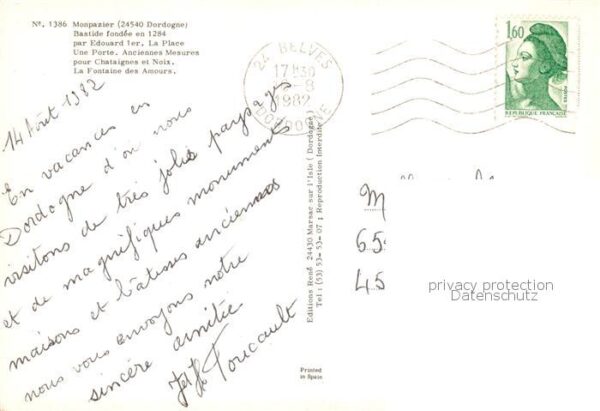 Nº. 1386 Monpazier (24540 Dordogne)
Bastide fondée en 1284
par Edouard 1er, La Place
Une Porte. Anciennes Mesures
pour Chataignes et Noix.
La Fontaine des Amours.
14 Août 1982
En vacances en
Dordogne d'où nous
visitons de très jolis paysages
et de magnifiques monuments
maisons et bâtisses anciennes
nous vous envoyons notre
sincère amitié
Foucault
24 BELVES
17H30
-8
1982
DORDOGNE
1,60
REPUBLIQUE FRANÇAISE
Editions René 24430 Marsac sur l'Isle (Dordogne)
Tel: (53) 53-53-07; Reproduction Interdite
Printed
in Spain
M
65
45
privacy protection
Datenschutz